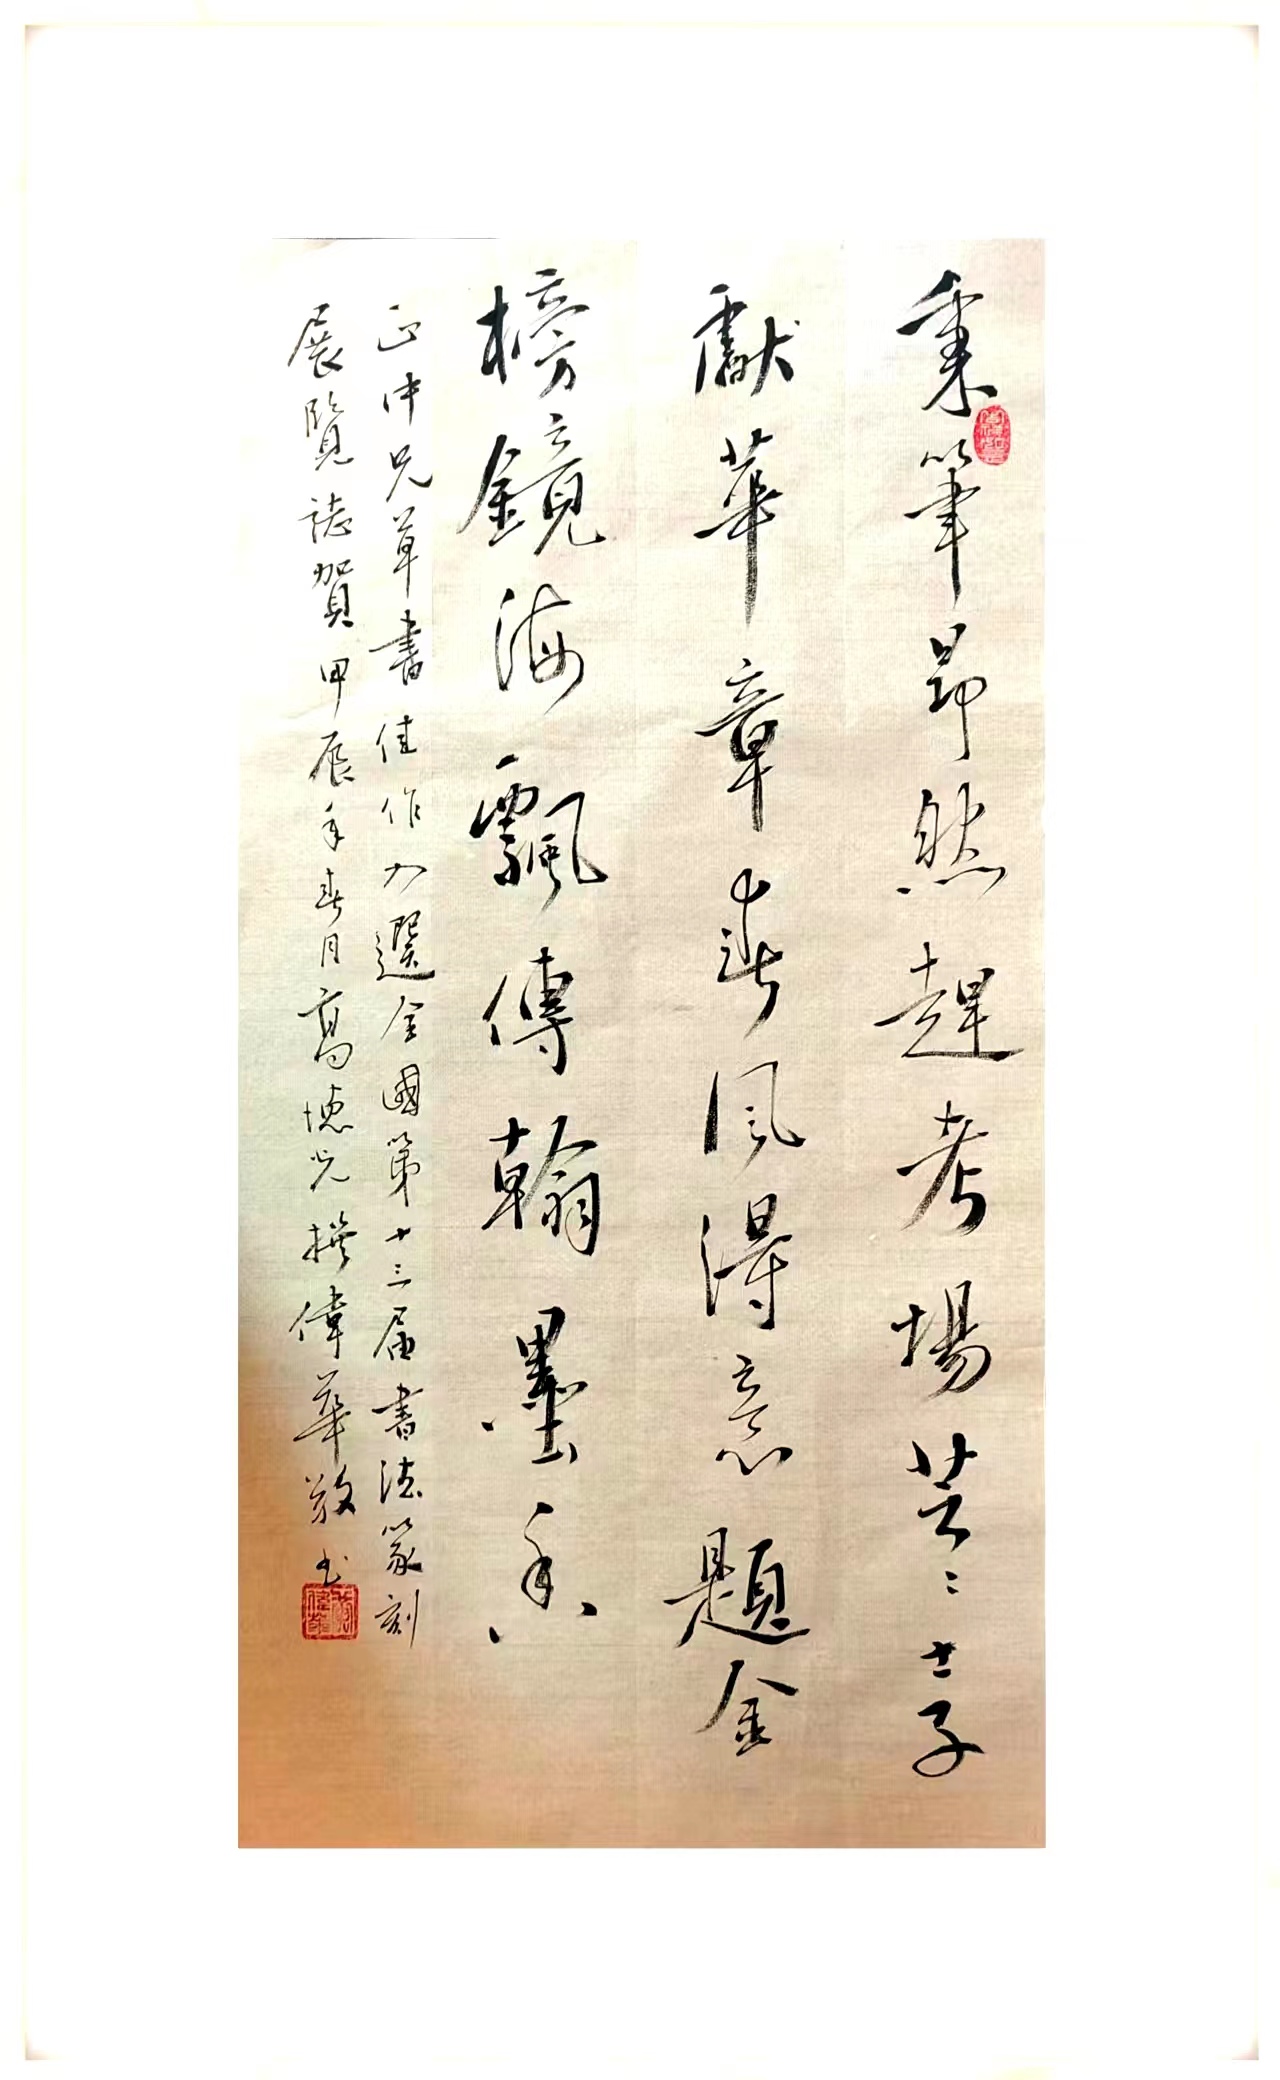 秉筆昂然趕考場芸〻士子
獻華章春風得意題金
榜鏡海飄傳翰墨香
正中兄草書佳作入選全國第十三届書法篆刻
展覽誌賀甲辰年春月高德光撰偉華敬书